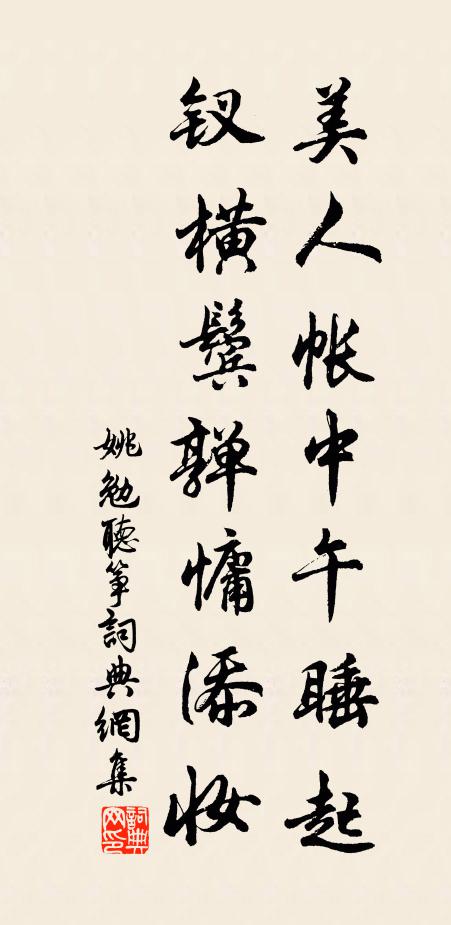 美人帐中午睡起
钗横鬓亸慵添妆
姚勉聽筝詞典網集
詞典网印